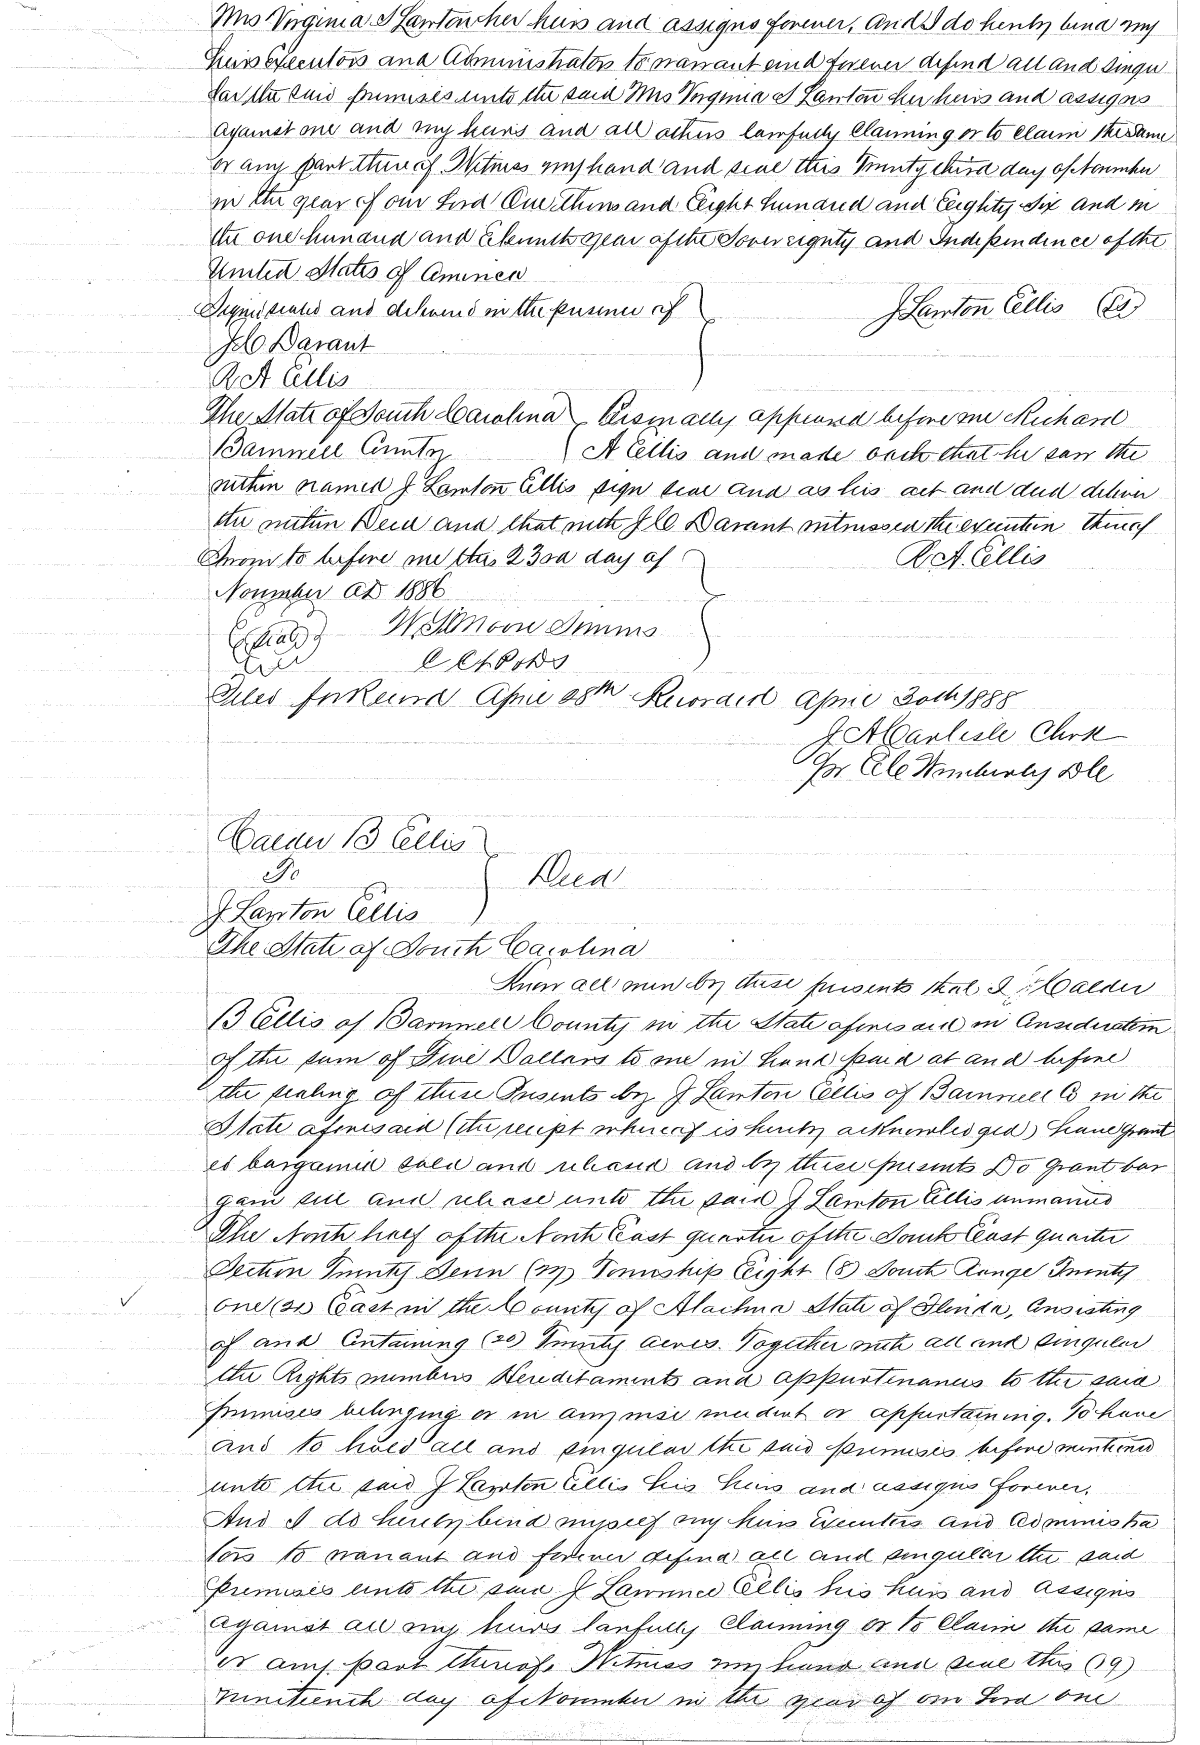 Mrs Virginia S Lawton her heirs and assigns forever, And I do hereby bind my
heirs Executors and Administrators to warrant and forever defend all and singu
lar the said premises unto the said Mrs Virginia S Lawton her heirs and assigns
against me and my heirs and all others lawfully claiming or to claim the same
or any part there of. Witness my hand and seal this Twenty third day of November
in the year of our Lord One thousand Eight hundred and Eighty-Six and in
the one hundred and Eleventh year of the Sovereignty and Independence of the
United States of America
Signed sealed and delivered in the presence of J Lawton Ellis (LS)
Davant
R A Ellis
The State of South Carolina Personally appeared before me Richard
Barnwell County A Ellis and made oath that he saw the
within named J Lawton Ellis sign seal and as his act and deed deliver
the within Deed and that with J C Davant witnessed the execution thereof
Sworn to before me this 23rd day of R. A. Ellis
November AD 1886
(Seal) W Moore Simms
Filed for Record April 28th Recorded April 30th 1888
J A Carlisle Clerk
Per Wimberly DC
Calder B Ellis
To Deed
J Lawton Ellis
The State of South Carolina
Know all men by these presents that I Calder
B Ellis of Barnwell County in the State aforesaid in Consideration
of the sum of Five Dollars to me in hand paid at and before
the sealing of these Presents by J Lawton Ellis of Barnwell Co in the
State aforesaid (the receipt whereof is hereby acknowledged) have grant
ed bargained sold and released and by these presents Do grant bar
gain sell and release unto the said J Lawton Ellis unmarried
The North half of the North East quarter of the South East quarter
Section Twenty Seven (27) Township Eight (8) South Range Twenty
one (21) East in the County of Alachua State of Florida, Consisting
of and Containing (20) Twenty acres. Together with all and singular
the Rights members Hereditaments and appurtenances to the said
premises belonging or in anywise incident or appertaining. To have
and to hold all and singular the said premises before mentioned
unto the said J Lawton Ellis his heirs and assigns forever.
And I do hereby bind myself my heirs Executors and Administra
tors to warrant and forever defend all and singular the said
premises unto the said J Lawrence Ellis his heirs and assigns
against all my heirs lawfully claiming or to claim the same
or any part thereof. Witness my hand and seal this (19)
nineteenth day of November in the year of our Lord one